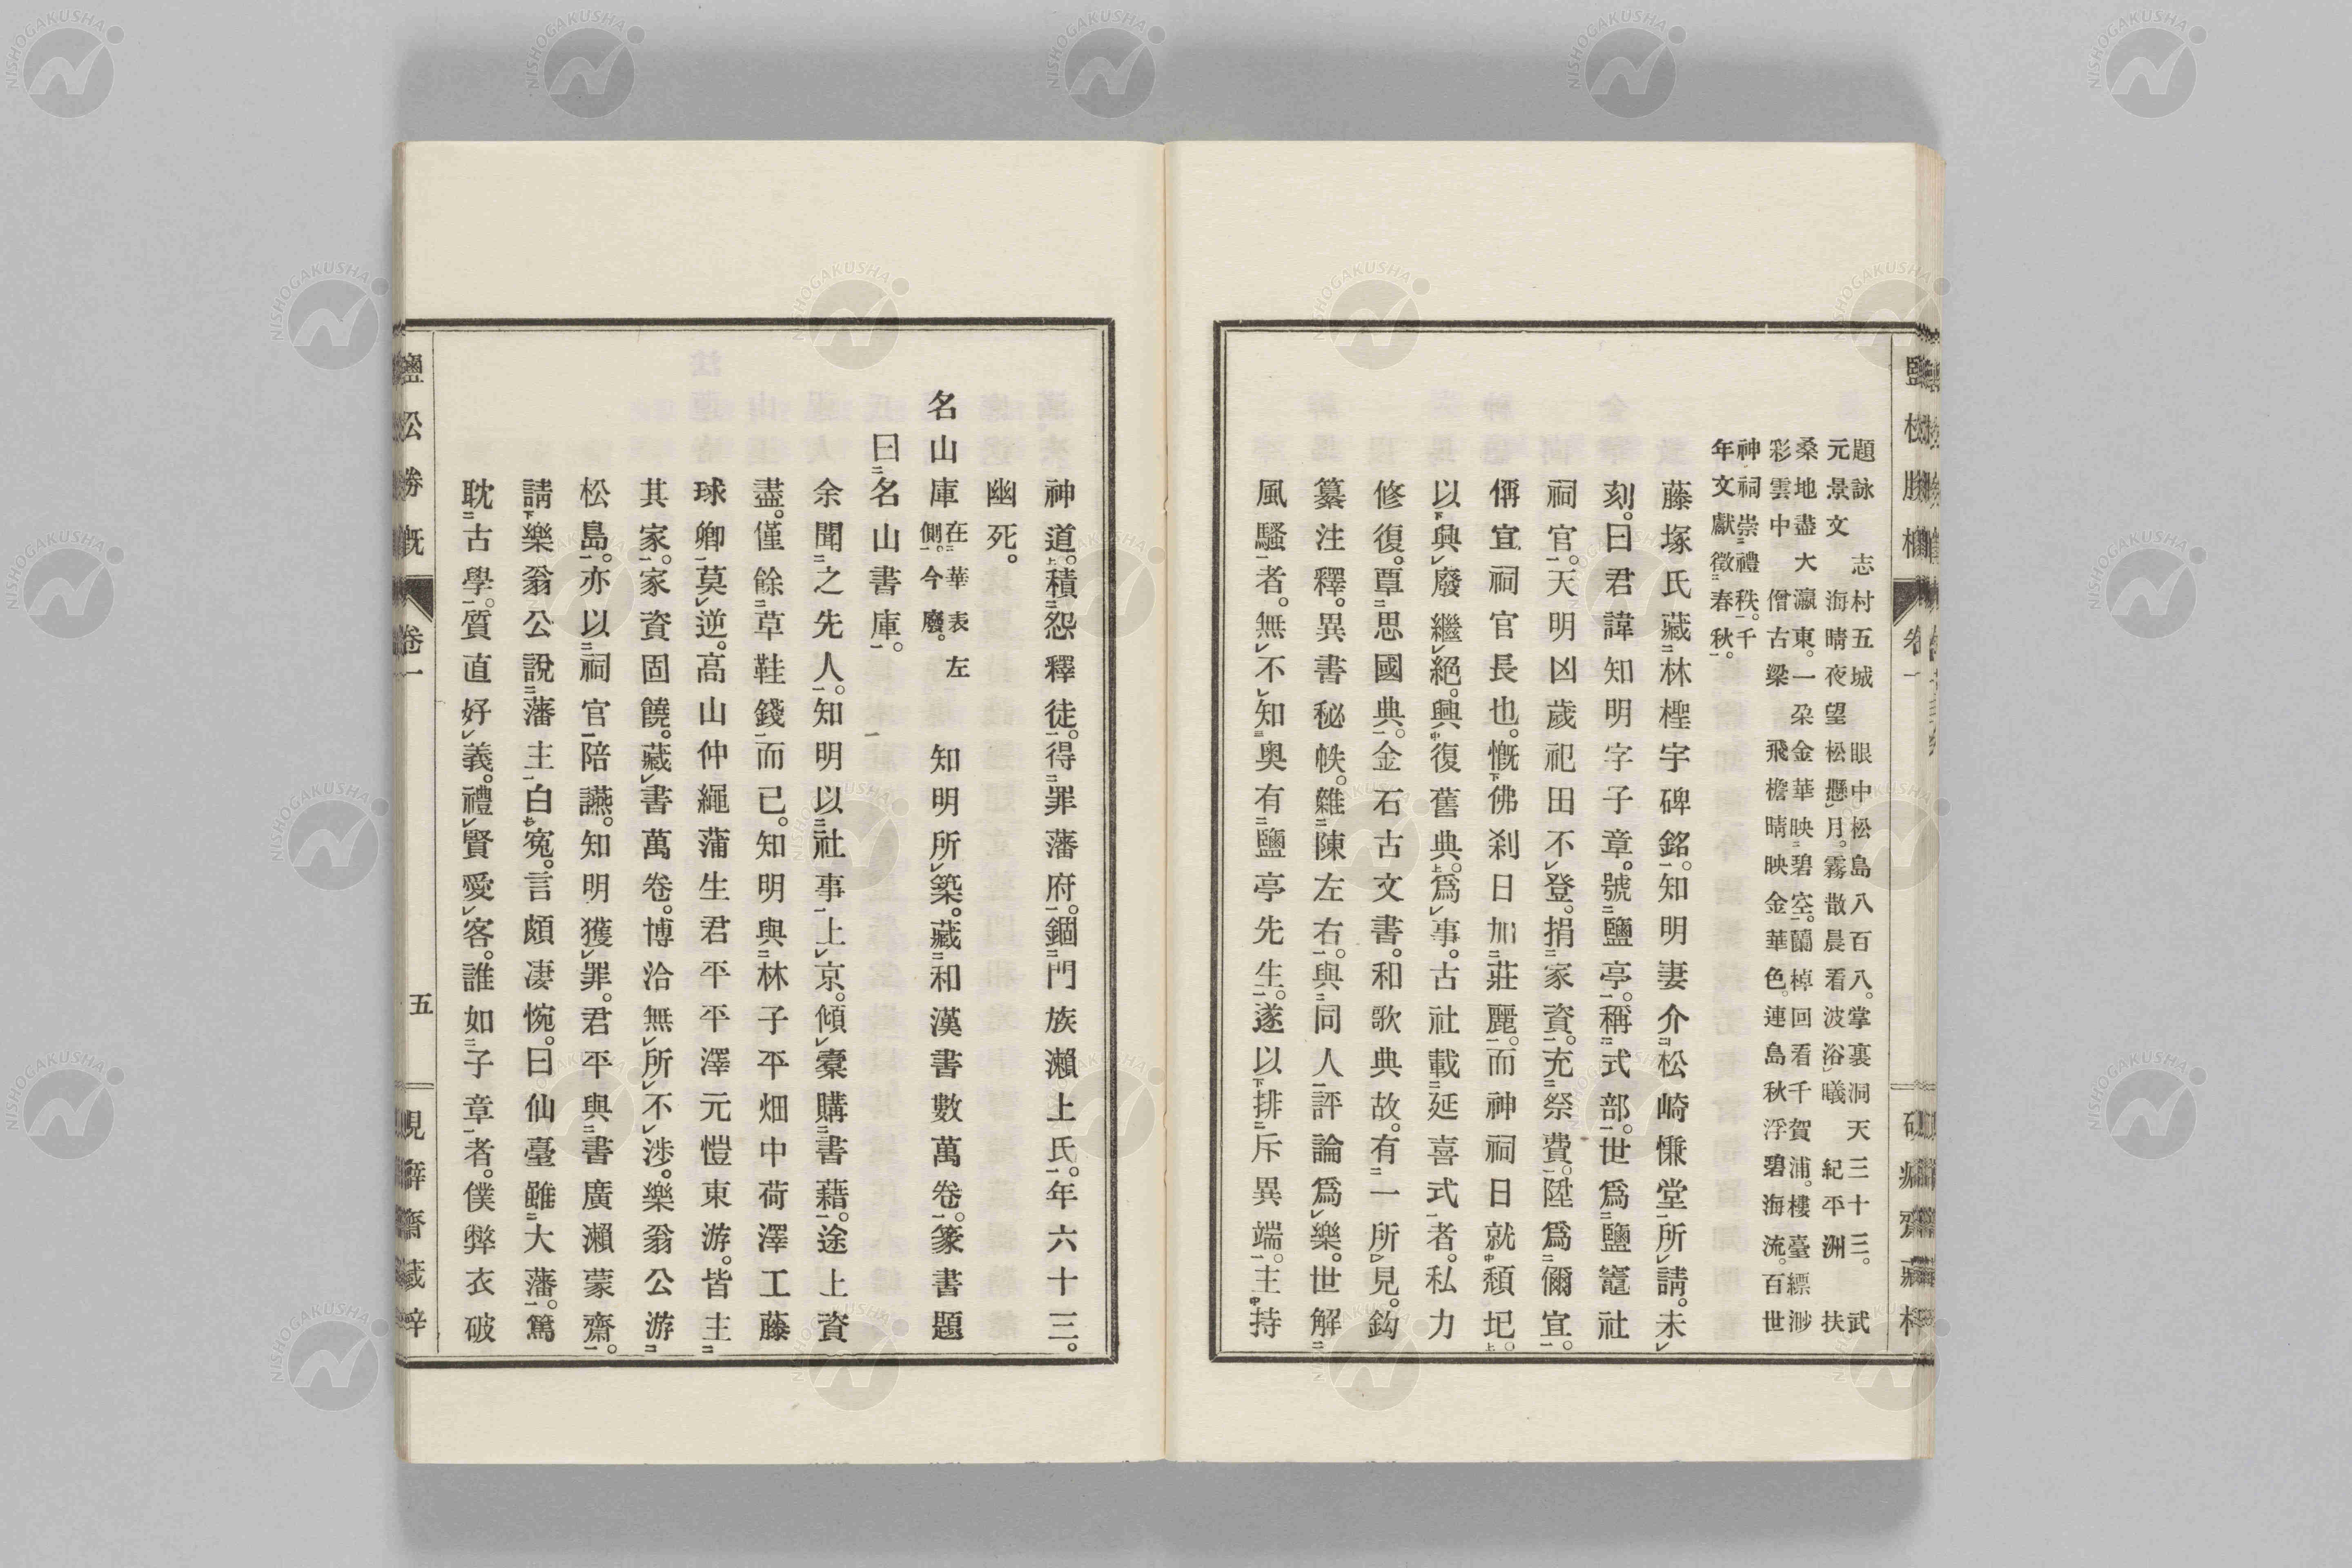 題詠 志村五城 眼中松島八百八。掌裏洞天三十三。 武
元景文 海晴夜望松懸月。霧散晨看波浴曦 紀平洲 扶
桑地盡大瀛東。一朶金華映碧空。蘭棹回看千賀浦。樓臺縹渺
彩雲中 僧古梁 飛檐晴映金華色。連島秋浮碧海流。百世
神祠崇禮秩。千
年文獻徵春秋。
藤塚氏藏林檉宇碑銘。知明妻介松崎慊堂所請。未
刻。曰君諱知明字子章。號鹽亭。稱式部。世爲鹽竈社
祠官。天明凶歲祀田不登。捐家資。充祭費。陞爲禰宜。
偁宜祠官長也。慨佛刹日加莊麗。而神祠日就頹圮。
以興廢繼絕。興復舊典。爲事。古社載延喜式者。私力
修復。覃思國典。金石古文書。和歌典故。有一所見。鈎
纂注釋。異書秘帙。雜陳左右。與同人評論爲樂。世解
風騷者。無不知奥有鹽亭先生。遂以排斥異端。主持
神道。積怨釋徒。得罪藩府。錮門族瀨上氏。年六十三。
幽死。
名山庫 在華表左側。今廢。 知明所築。藏和漢書數萬卷。篆書題
曰名山書庫。
余聞之先人。知明以社事上京。傾橐購書藉。途上資
盡。僅餘草鞋錢而已。知明與林子平畑中荷澤工藤
球卿莫逆。高山仲繩蒲生君平平澤元愷東游。皆主
其家。家資固饒。藏書萬卷。博洽無所不涉。樂翁公游
松島。亦以祠官陪讌。知明獲罪。君平與書廣瀨蒙齋。
請樂翁公說藩主白寃。言頗凄惋。曰仙臺雖大藩。篤
耽古學。質直好義。禮賢愛客。誰如子章者。僕弊衣破
鹽松勝槪 卷一 五